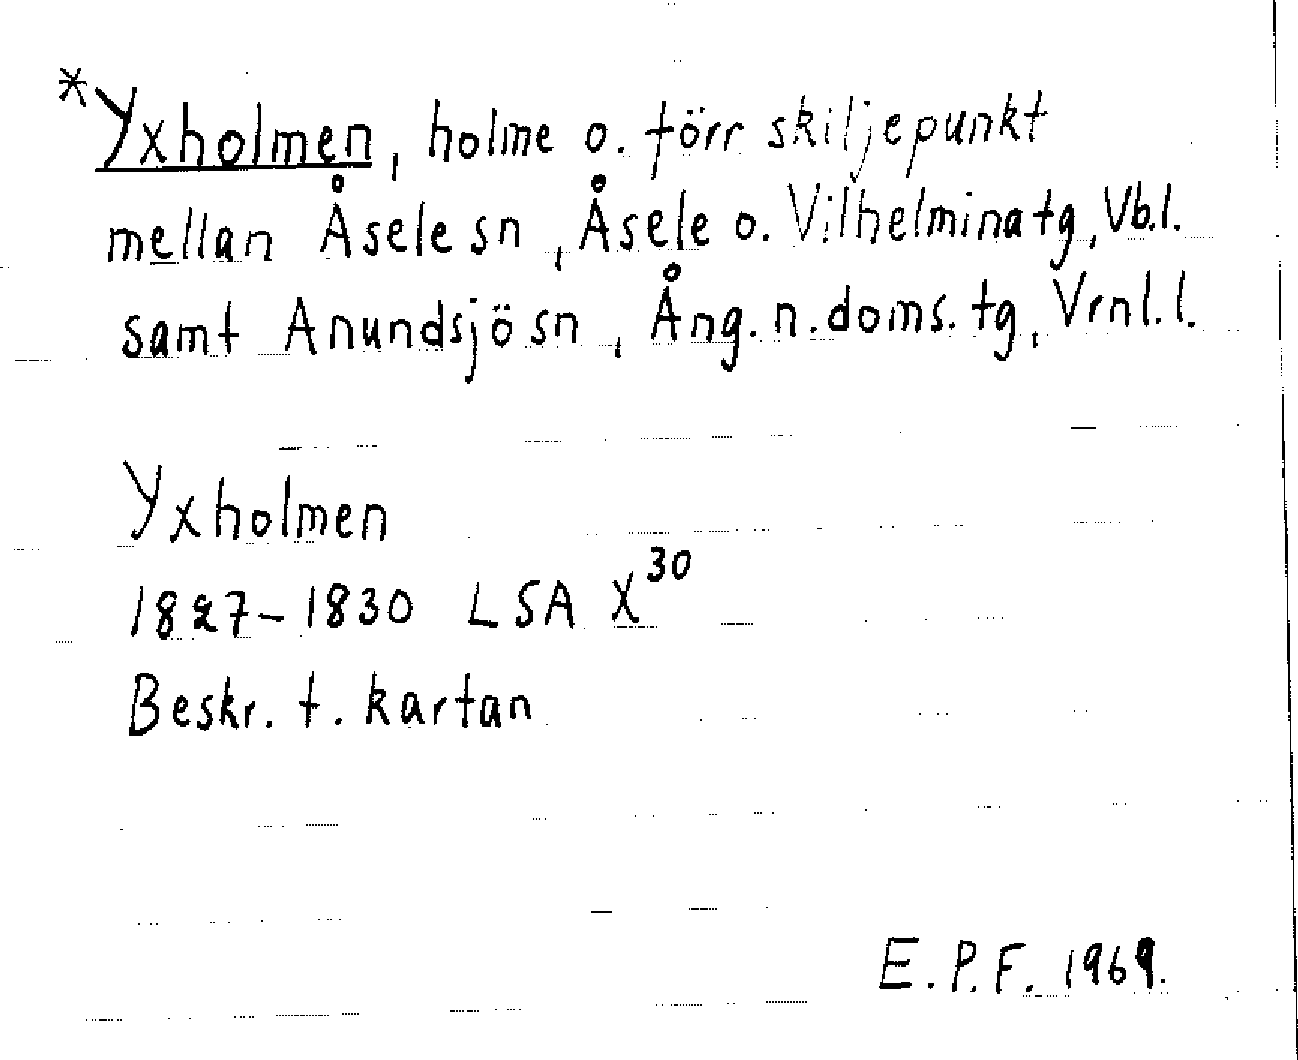 *Yxholmen, holme o. förr skiljepunkt
mellan Åsele sn, Åsele o. Vilhelmina tg, Vb.l.
samt Anundsjö sn, Ång. n. doms. tg, Vrnl. l.
Yxholmen
1827-1830 LSA X30
Beskr. t. kartan
E.P.F. 1969.